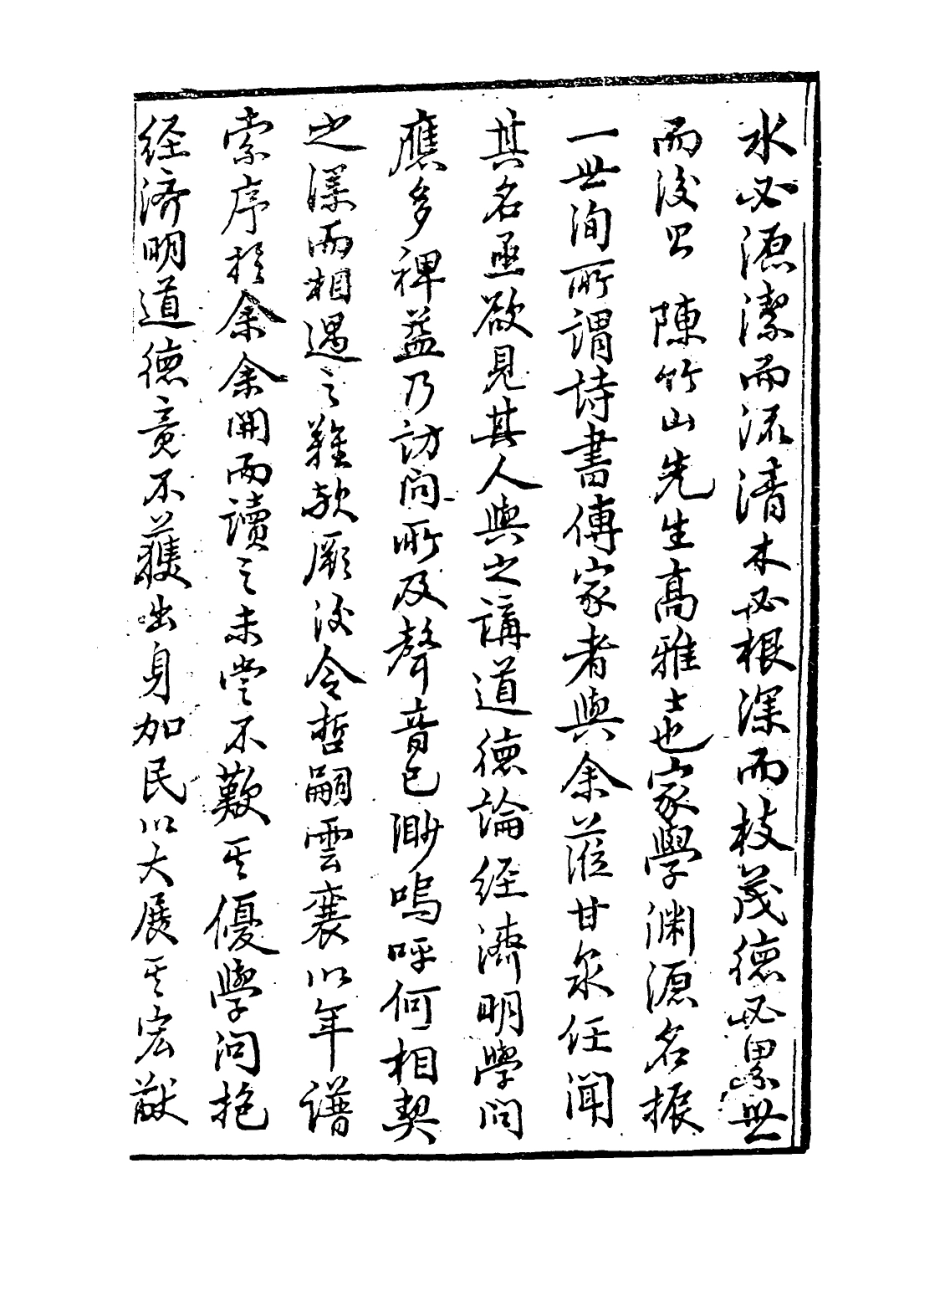 水必源潔而流清木必根深而枝茂德必累世
而後昌 陳竹山先生高雅士也家學淵源名振
一世洵所謂詩書傳家者與余蒞甘泉任聞
其名亟欲見其人與之講道德論経濟明學問
應多裨益乃訪問所及聲音已渺嗚呼何相契
之深而相遇之難歟厥後令哲嗣雲襄以年譜
索序於余余開而讀之未嘗不歎其優學问抱
経济明道德竟不獲出身加民以大展其宏猷